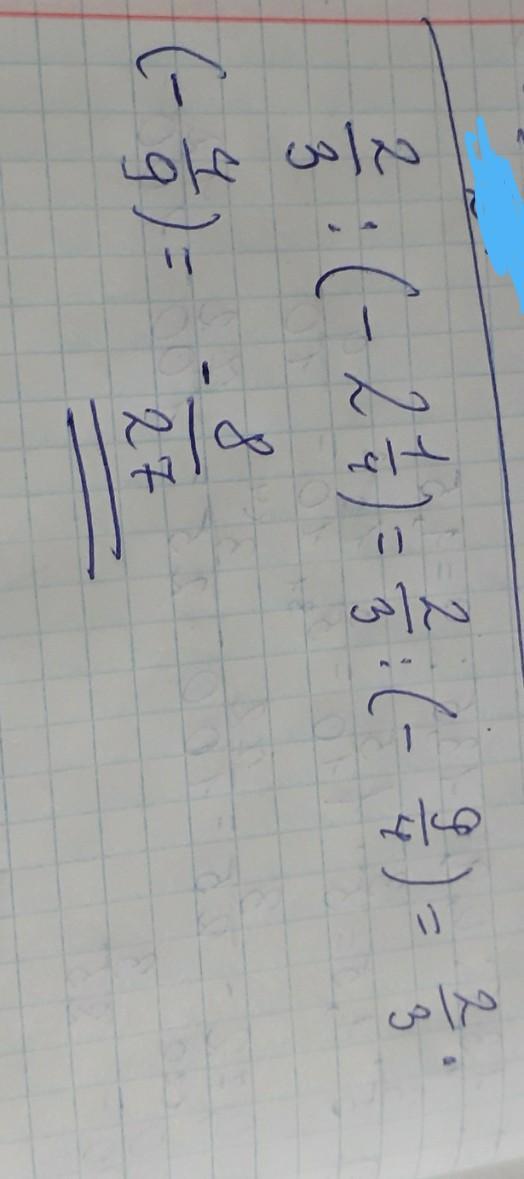 2/3 : (- 2 1/4) = 2/3 : (- 9/4) = 2/3 ·
(- 4/9) = - 8/27